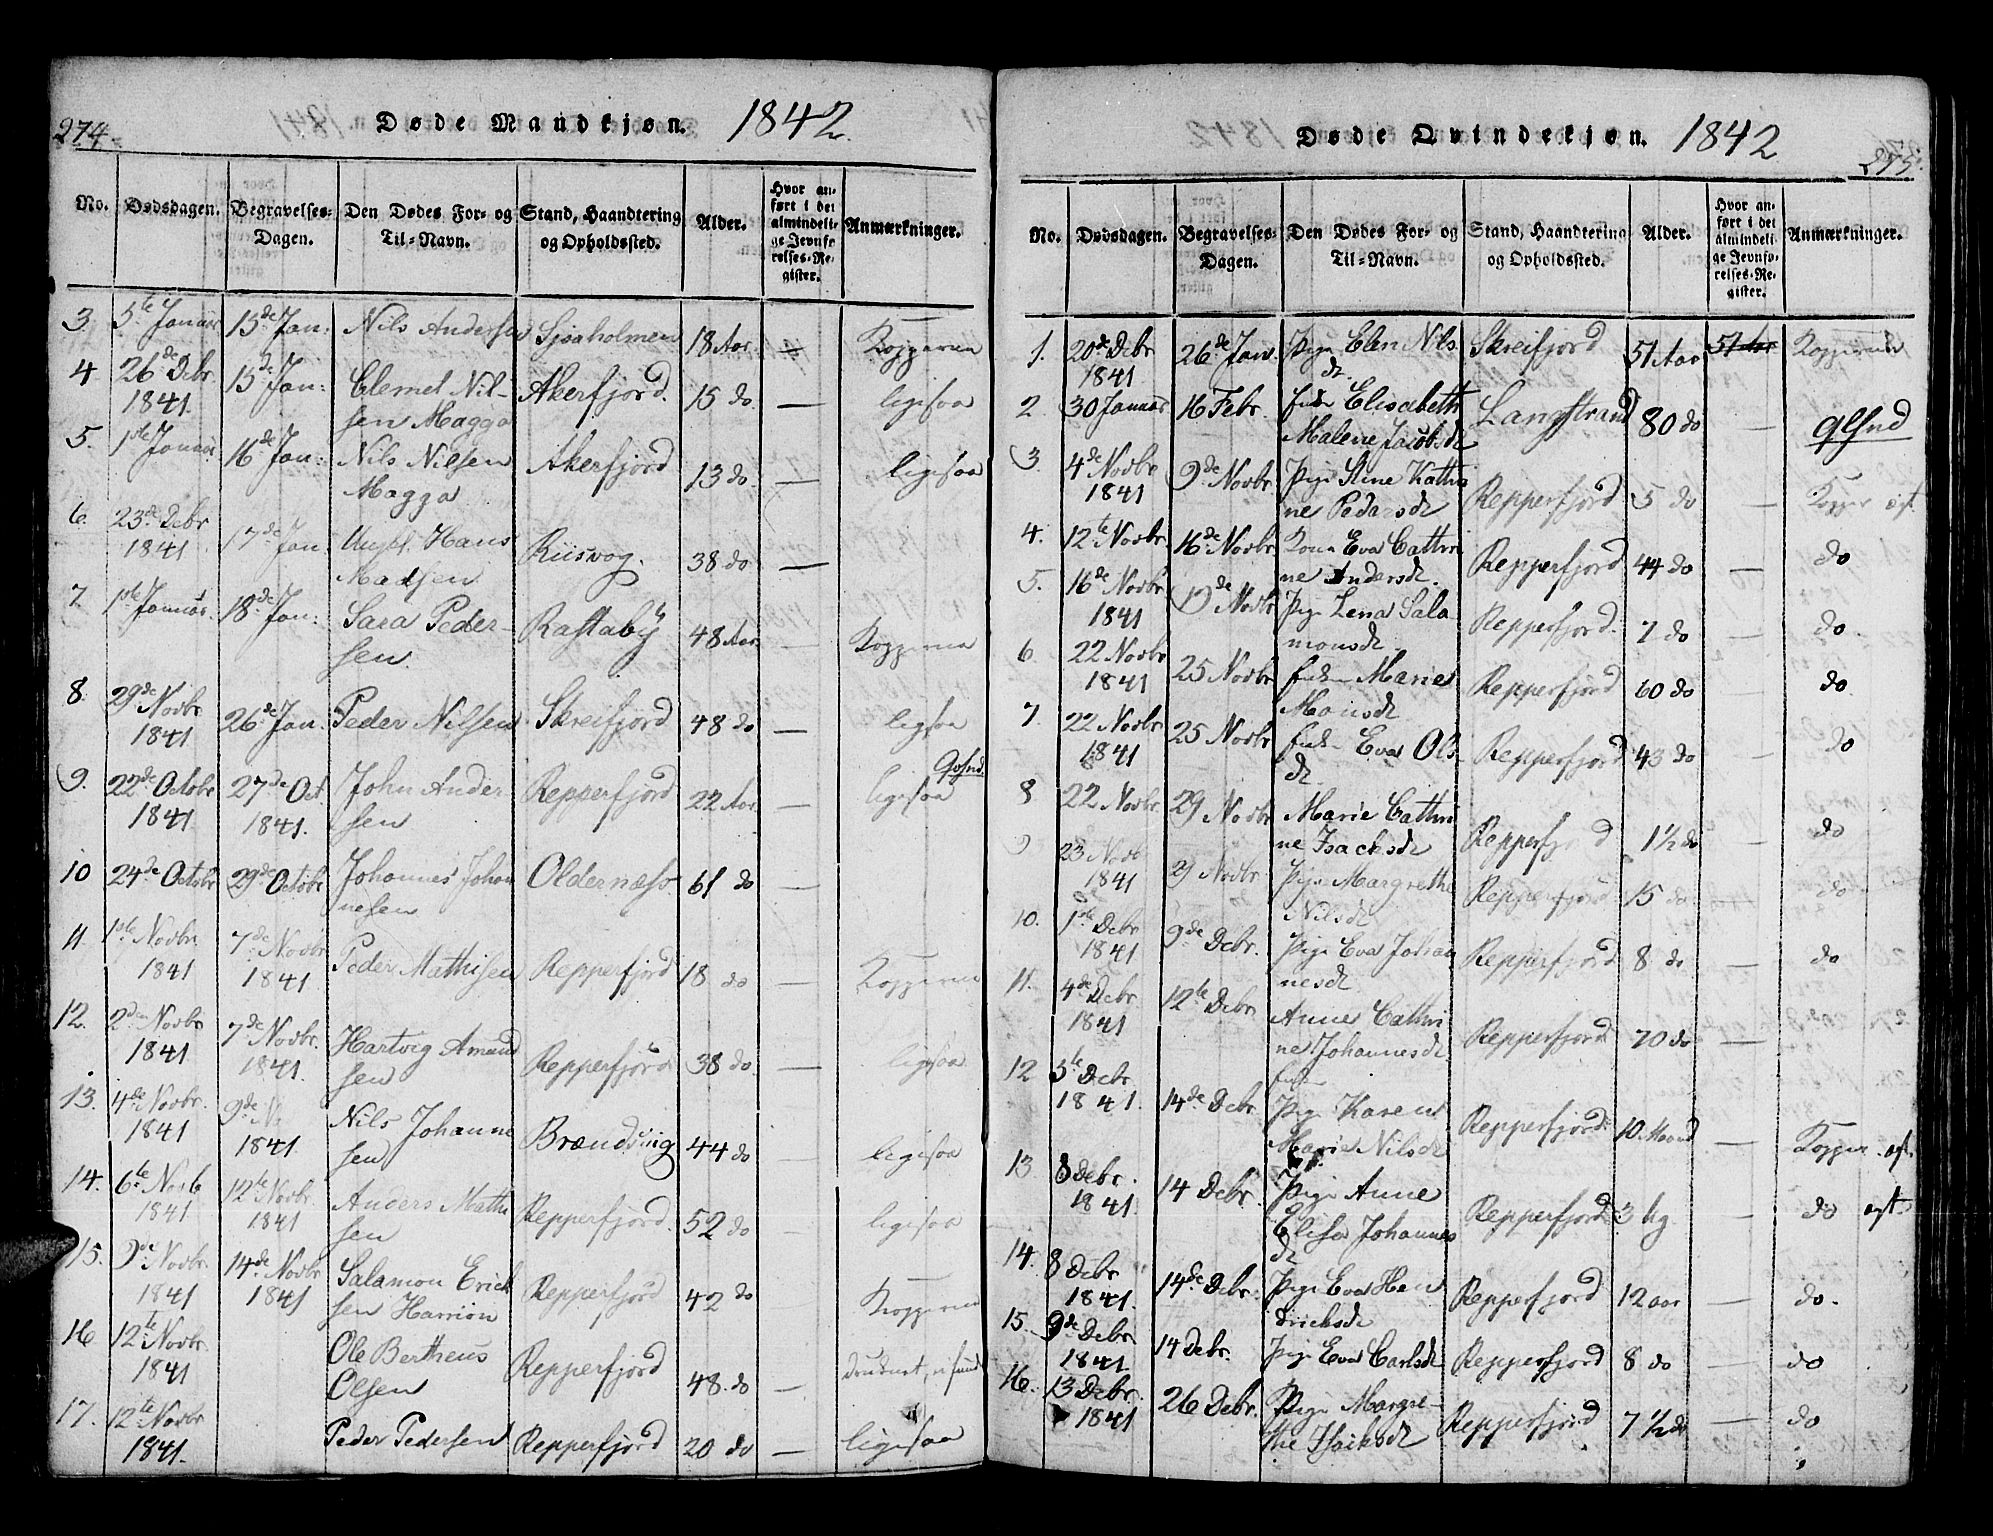 274
Døde Mandkjøn. 1842.
No. Dødsdagen. Begravelses-Dagen. Den Dødes For- og Til-Navn. Stand, Haandtering og Opholdssted. Alder. Hvor anført i det almindelige Jevnførelses-Register. Anmærkninger.
3. 5te Januar 15de Jan: Nils Andersen Sjøaholmen 18 Aar Kopperne
4 26de Debr. 1841. 15de Jan: Clemet Nilsen Magga Akerfjord. 15 do. — ligesaa
5. 1ste Januar 16de Jan: Nils Nilsen Magga Akerfjord 13 do — ligesaa
6. 23de Debr 1841 17de Jan. Ungk. Hans Madsen Riisvog. 38 do —
7 1ste Januar. 18de Jan: Sara Pedersen. Rastabÿ 48 Aar. — Kopperne
8. 29de Novbr 1841 26de Jan: Peder Nilsen Skreifjord 48 do — ligesaa
9. 22de Octobr 1841 27de Oct 1841. John Andersen Repperfjord 22 Aar — ligesaa
10 24de Octobr 29de Octobr Johannes Johannesen Oldernæss 61 do —
11. 1ste Novbr. 1841 7de Novbr 1841 Peder Mathisen Repperfjord 18 do — Kopperne
12. 2den Novbr 1841 7de Novbr. 1841. Hartvig Amundsen Repperfjord 38 do — ligesaa
13. 4de Novbr. 1841 9de No 1841. Nils Johannesen Brændsing 44 do — ligesaa
14. 6te Novb 1841 12te Novbr. 1841 Anders Mathisen Repperfjord. 52 do — ligesaa
15. 9de Novbr. 1841 14de Novbr 1841 Salamon Ericksen Repperfjord 42 do Kopperne
16 12te Novbr. 1841 Ole Bertheus Olsen Repperfjord 48. do — druknet,
17. 12te Novbr 1841. Peder Pedersen Repperfjord 20 do — ligesaa
Døde Qvindekjøn. 1842
275.
No. Dødsdagen. Begravelses-Dagen. Den Dødes For- og Til-Navn. Stand, Haandtering og Opholdssted. Alder. Hvor anført i det almindelige Jevnførelses-Register. Anmærkninger.
1. 20de Debr 1841 26de Jan. Pige Elen Nilsdt. Skreifjord 51 Aar 51 Aar Kopperne
2. 30 Januar 16 Febr. Enke Elisabeth Malene Jacobsdt Langstrand 80 do —
3. 4de Novbr 1841 9de Novbr Pige Stine Kathrine Pedersdt Repperfjord 5 do — Kopper
4. 12te Novbr. 16de Novbr Kone Eva Cathrine Andersdt. Repperfjord 44 do — do
5. 16de Novbr 1841 19de Novbr Pige Lena Salamonsdt. Repperfjord. 7 do — do
6. 22 Novbr 1841 25 Novbr Enke Marie Monsdt Repperfjord 60 do — do
7. 22 Novbr 1841 25 Novbr Enke Eva Olsdt. Repperfjord 43 do — do
8 22 Novbr. 29 Novbr Marie Cathrine Isacksdt Repperfjord 1½ do — do
9 23 Novb 1841 29 Novbr Pige Margrethe Nilsdt Repperfjord 15 do — do
10. 1ste Debr 1841 9de Debr. Pige Eva Johannesdt. Repperfjord 8 do — do
11. 4de Debr 1841 12te Debr. Anne Cathrine Johannesdt. Enke Repperfjord 70 do —
12 5te Debr 1841. 14de Debr. Pige Karen Marie Nilsdt Repperfjord 10 Maaned — Kopper
13 8 Debr. 1841 14 Debr. Pige Anne Elisa Johannesdt Repperfjord 3 Ug — do
14. 8 Debr 1841. 14de Debr. Pige Eva Hendricksdt Repperfjord 12 aar — do.
15. 9de Debr 1841. 14 Debr. Pige Eva Carlsdt Repperfjord 8 do — do
16. 13 Debr. 1841 26 Debr. Pige Margrethe Isaksdt Repperfjord 7½ do — do